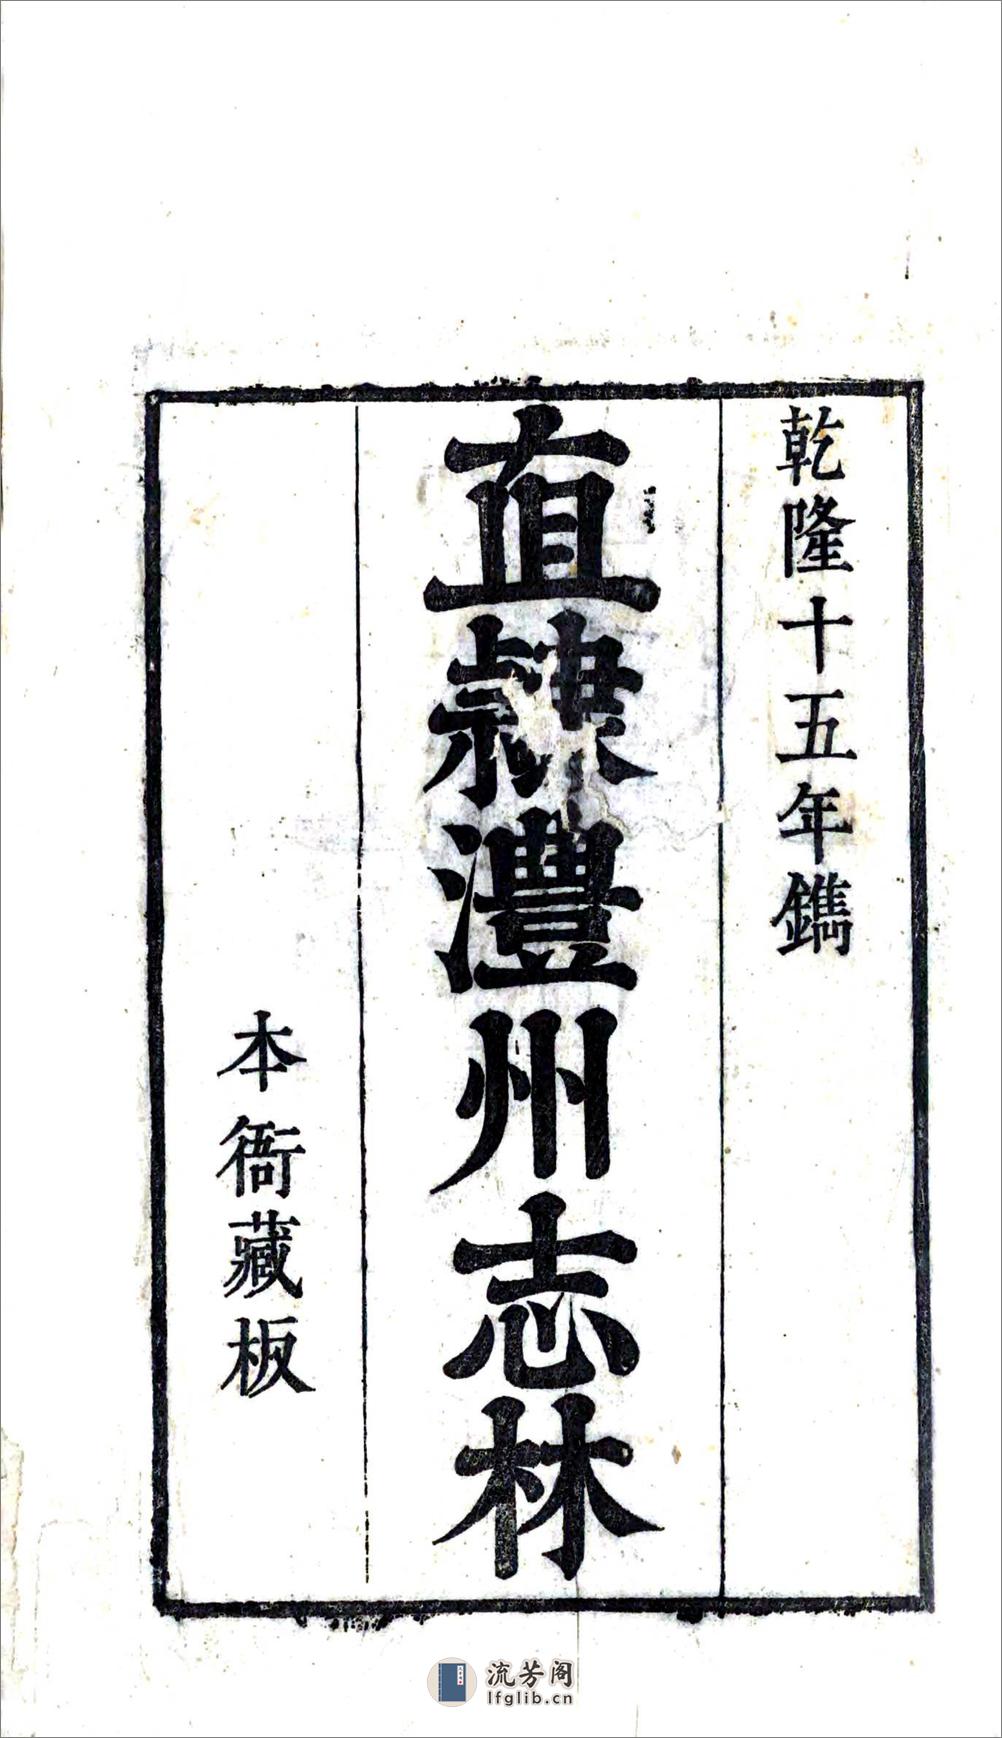 乾隆十五年鐫
直隸澧州志林
本衙藏板
流芳阁
lfglib.cn